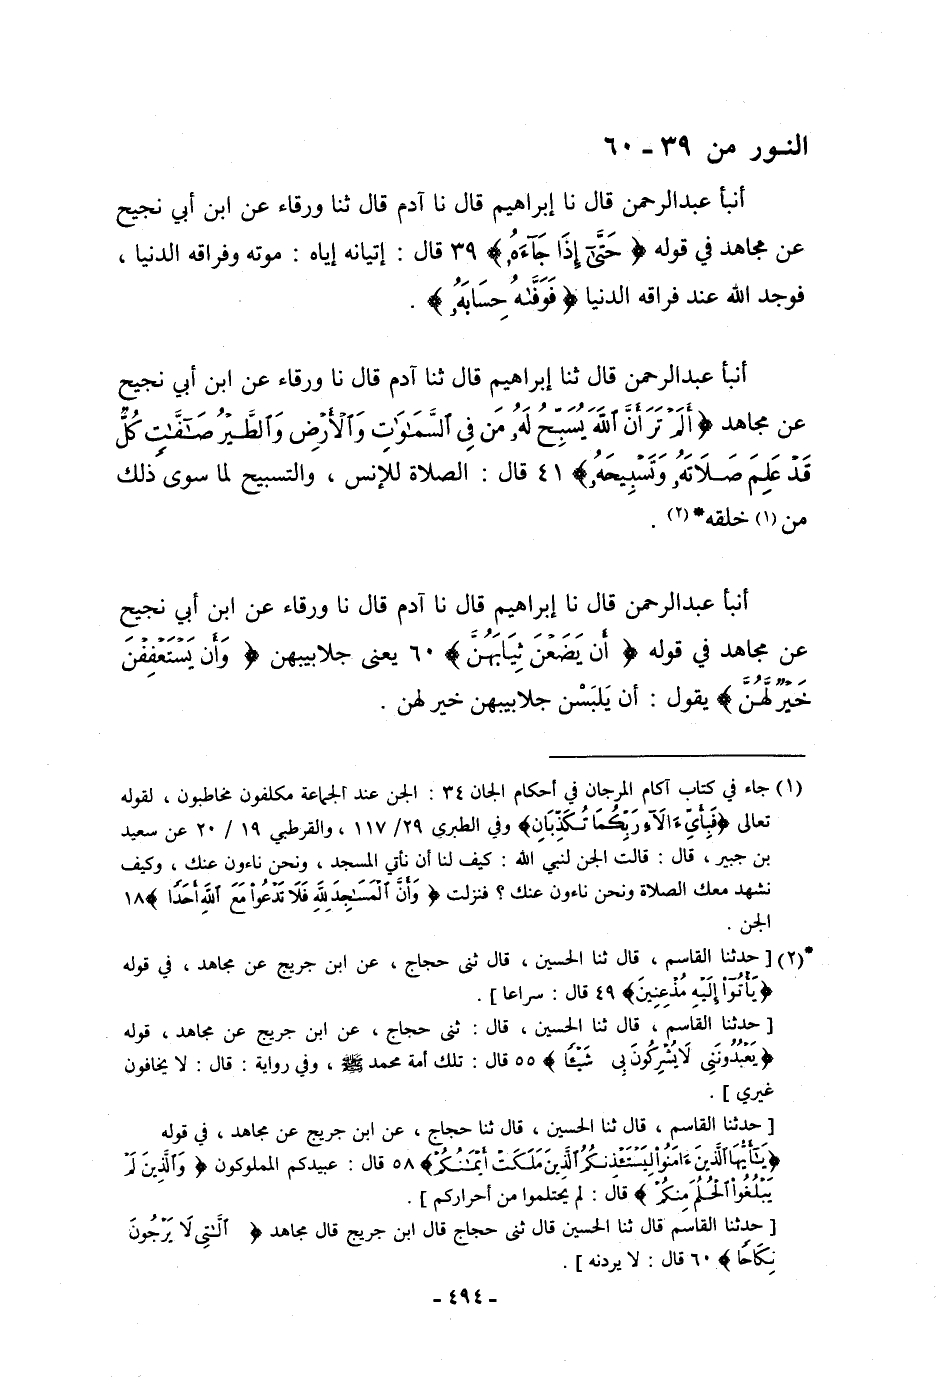 النـور من ٣٩ ـ ٦٠
أنبأ عبدالرحمن قال نا إبراهيم قال نا آدم قال ثنا ورقاء عن ابن أبي نجيح
عن مجاهد في قوله ﴿ حَتَّىٰٓ إِذَا جَآءَهُۥ ﴾ ٣٩ قال : إتيانه إياه : موته وفراقه الدنيا ،
فوجد الله عند فراقه الدنيا ﴿ فَوَفَّىٰهُ حِسَابَهُۥ ﴾ .
أنبأ عبدالرحمن قال ثنا إبراهيم قال ثنا آدم قال نا ورقاء عن ابن أبي نجيح
عن مجاهد ﴿ أَلَمْ تَرَ أَنَّ ٱللَّهَ يُسَبِّحُ لَهُۥ مَن فِى ٱلسَّمَٰوَٰتِ وَٱلْأَرْضِ وَٱلطَّيْرُ صَٰٓفَّٰتٍ كُلٌّ
قَدْ عَلِمَ صَلَاتَهُۥ وَتَسْبِيحَهُۥ ﴾ ٤١ قال : الصلاة للإنس ، والتسبيح لما سوى ذلك
من (١) خلقه* (٢) .
أنبأ عبدالرحمن قال نا إبراهيم قال نا آدم قال نا ورقاء عن ابن أبي نجيح
عن مجاهد في قوله ﴿ أَن يَضَعْنَ ثِيَابَهُنَّ ﴾ ٦٠ يعنى جلابيبهن ﴿ وَأَن يَسْتَعْفِفْنَ
خَيْرٌ لَّهُنَّ ﴾ يقول : أن يَلبَسْن جلابيبهن خير لهن .
(١) جاء في كتاب آكام المرجان في أحكام الجان ٣٤ : الجن عند الجماعة مكلفون مخاطبون ، لقوله
تعالى ﴿فَبِأَىِّ ءَالَآءِ رَبِّكُمَا تُكَذِّبَانِ﴾ وفي الطبري ٢٩/ ١١٧ ، والقرطبي ١٩ / ٢٠ عن سعيد
بن جبير ، قال : قالت الجن لنبي الله : كيف لنا أن نأتي المسجد ، ونحن ناءون عنك ، وكيف
نشهد معك الصلاة ونحن ناءون عنك ؟ فنزلت ﴿ وَأَنَّ ٱلْمَسَٰجِدَ لِلَّهِ فَلَا تَدْعُوا۟ مَعَ ٱللَّهِ أَحَدًا ﴾ ١٨
الجن .
*(٢) [ حدثنا القاسم ، قال ثنا الحسين ، قال ثنى حجاج ، عن ابن جريج عن مجاهد ، في قوله
﴿يَأْتُوٓا۟ إِلَيْهِ مُذْعِنِينَ﴾ ٤٩ قال : سراعا ] .
[ حدثنا القاسم ، قال ثنا الحسين ، قال : ثنى حجاج ، عن ابن جريج عن مجاهد ، قوله
﴿يَعْبُدُونَنِى لَا يُشْرِكُونَ بِى شَيْـًٔا ﴾ ٥٥ قال : تلك أمة محمد ﷺ ، وفي رواية : قال : لا يخافون
غيري ] .
[ حدثنا القاسم ، قال ثنا الحسين ، قال ثنا حجاج ، عن ابن جريج عن مجاهد ، في قوله
﴿يَٰٓأَيُّهَا ٱلَّذِينَ ءَامَنُوا۟ لِيَسْتَـْٔذِنكُمُ ٱلَّذِينَ مَلَكَتْ أَيْمَٰنُكُمْ﴾ ٥٨ قال : عبيدكم المملوكون ﴿ وَٱلَّذِينَ لَمْ
يَبْلُغُوا۟ ٱلْحُلُمَ مِنكُمْ ﴾ قال : لم يحتلموا من أحراركم ] .
[ حدثنا القاسم قال ثنا الحسين قال ثنى حجاج قال ابن جريج قال مجاهد ﴿ ٱلَّٰتِى لَا يَرْجُونَ
نِكَاحًا ﴾ ٦٠ قال : لا يردنه ] .
ـ ٤٩٤ ـ